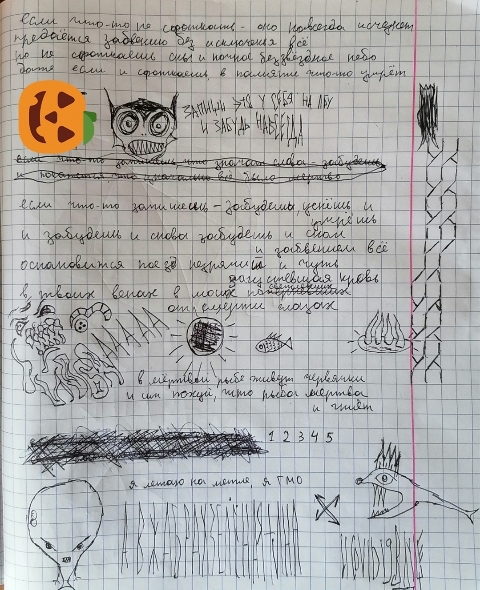 если что-то не сфоткать - оно навсегда исчезнет
предаётся забвению без исключения всё
но не сфоткаешь сны и ночное беззвёздное небо
даже если и сфоткаешь в памяти что-то умрёт
ЗАПИШИ ЭТО У СЕБЯ НА ЛБУ
И ЗАБУДЬ НАВСЕГДА
если что-то запишешь, что значат слова - забудешь
и что изначально всё было мертво
если что-то запишешь - забудешь уснёшь и
умрёшь
и забудешь и снова забудешь и сном
и забвением всё
остановится поезд и чуть
загустевшая кровь
в твоих венах в моих
от смерти глазах
в мёртвой рыбе живут червячки
и им похуй, что рыба мертва
и гниёт
1 2 3 4 5
я летаю на метле я ГМО